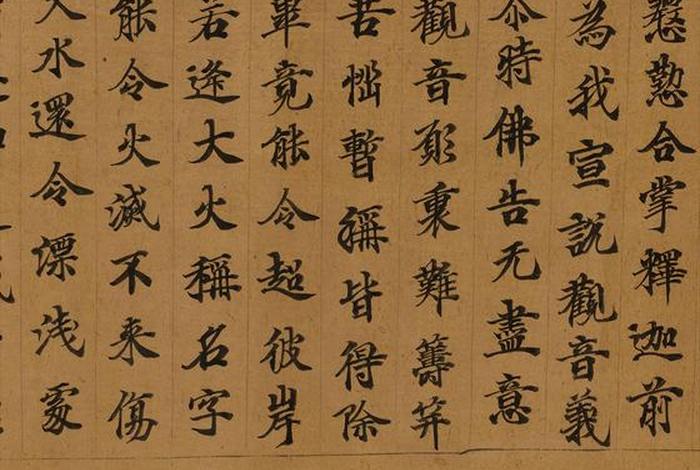 慇懃合掌釋迦前
為我宣說觀音義
尒時佛告无盡意
觀音願重難籌筭
苦惱暫稱皆得除
畢竟能令超彼岸
若逢大火稱名字
能令火滅不来傷
水還令漂浅處